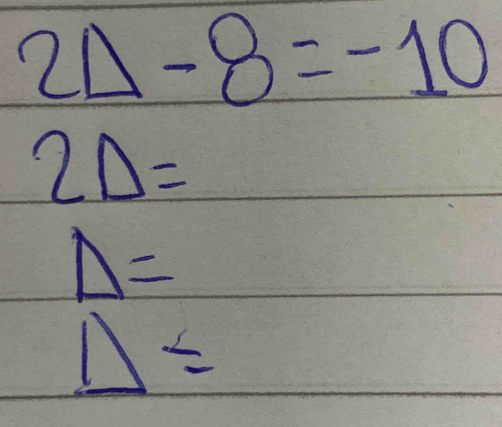 2Δ - 8 = -10
2Δ =
Δ =
Δ =